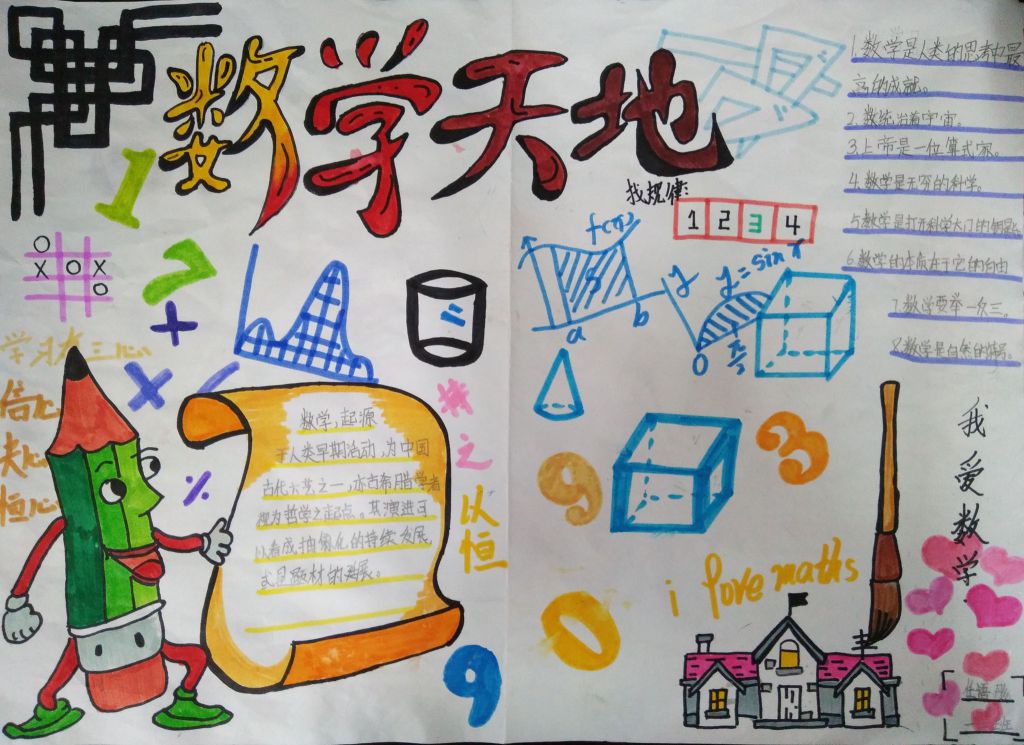 数学天地
1
2
+
X
O
X O X
O
学习有三心
信心
决心
恒心
%
数学,起源
于人类早期活动,为中国
古代六艺之一,亦古希腊学者
视为哲学之起点。其演进可
以看成抽象化的持续发展,
或是题材的延展。
持之
以恒
9
找规律:
1 2 3 4
f(x)
S
a
b
y
y=sinx
0
9
3
0
i love maths
1.数学是人类的思考中最
高的成就。
2.数统治着宇宙。
3.上帝是一位算术家。
4.数学是无穷的科学。
5.数学是打开科学大门的钥匙。
6.数学的本质在于它的自由
7.数学要举一反三。
8.数学是自然的
我爱数学
班